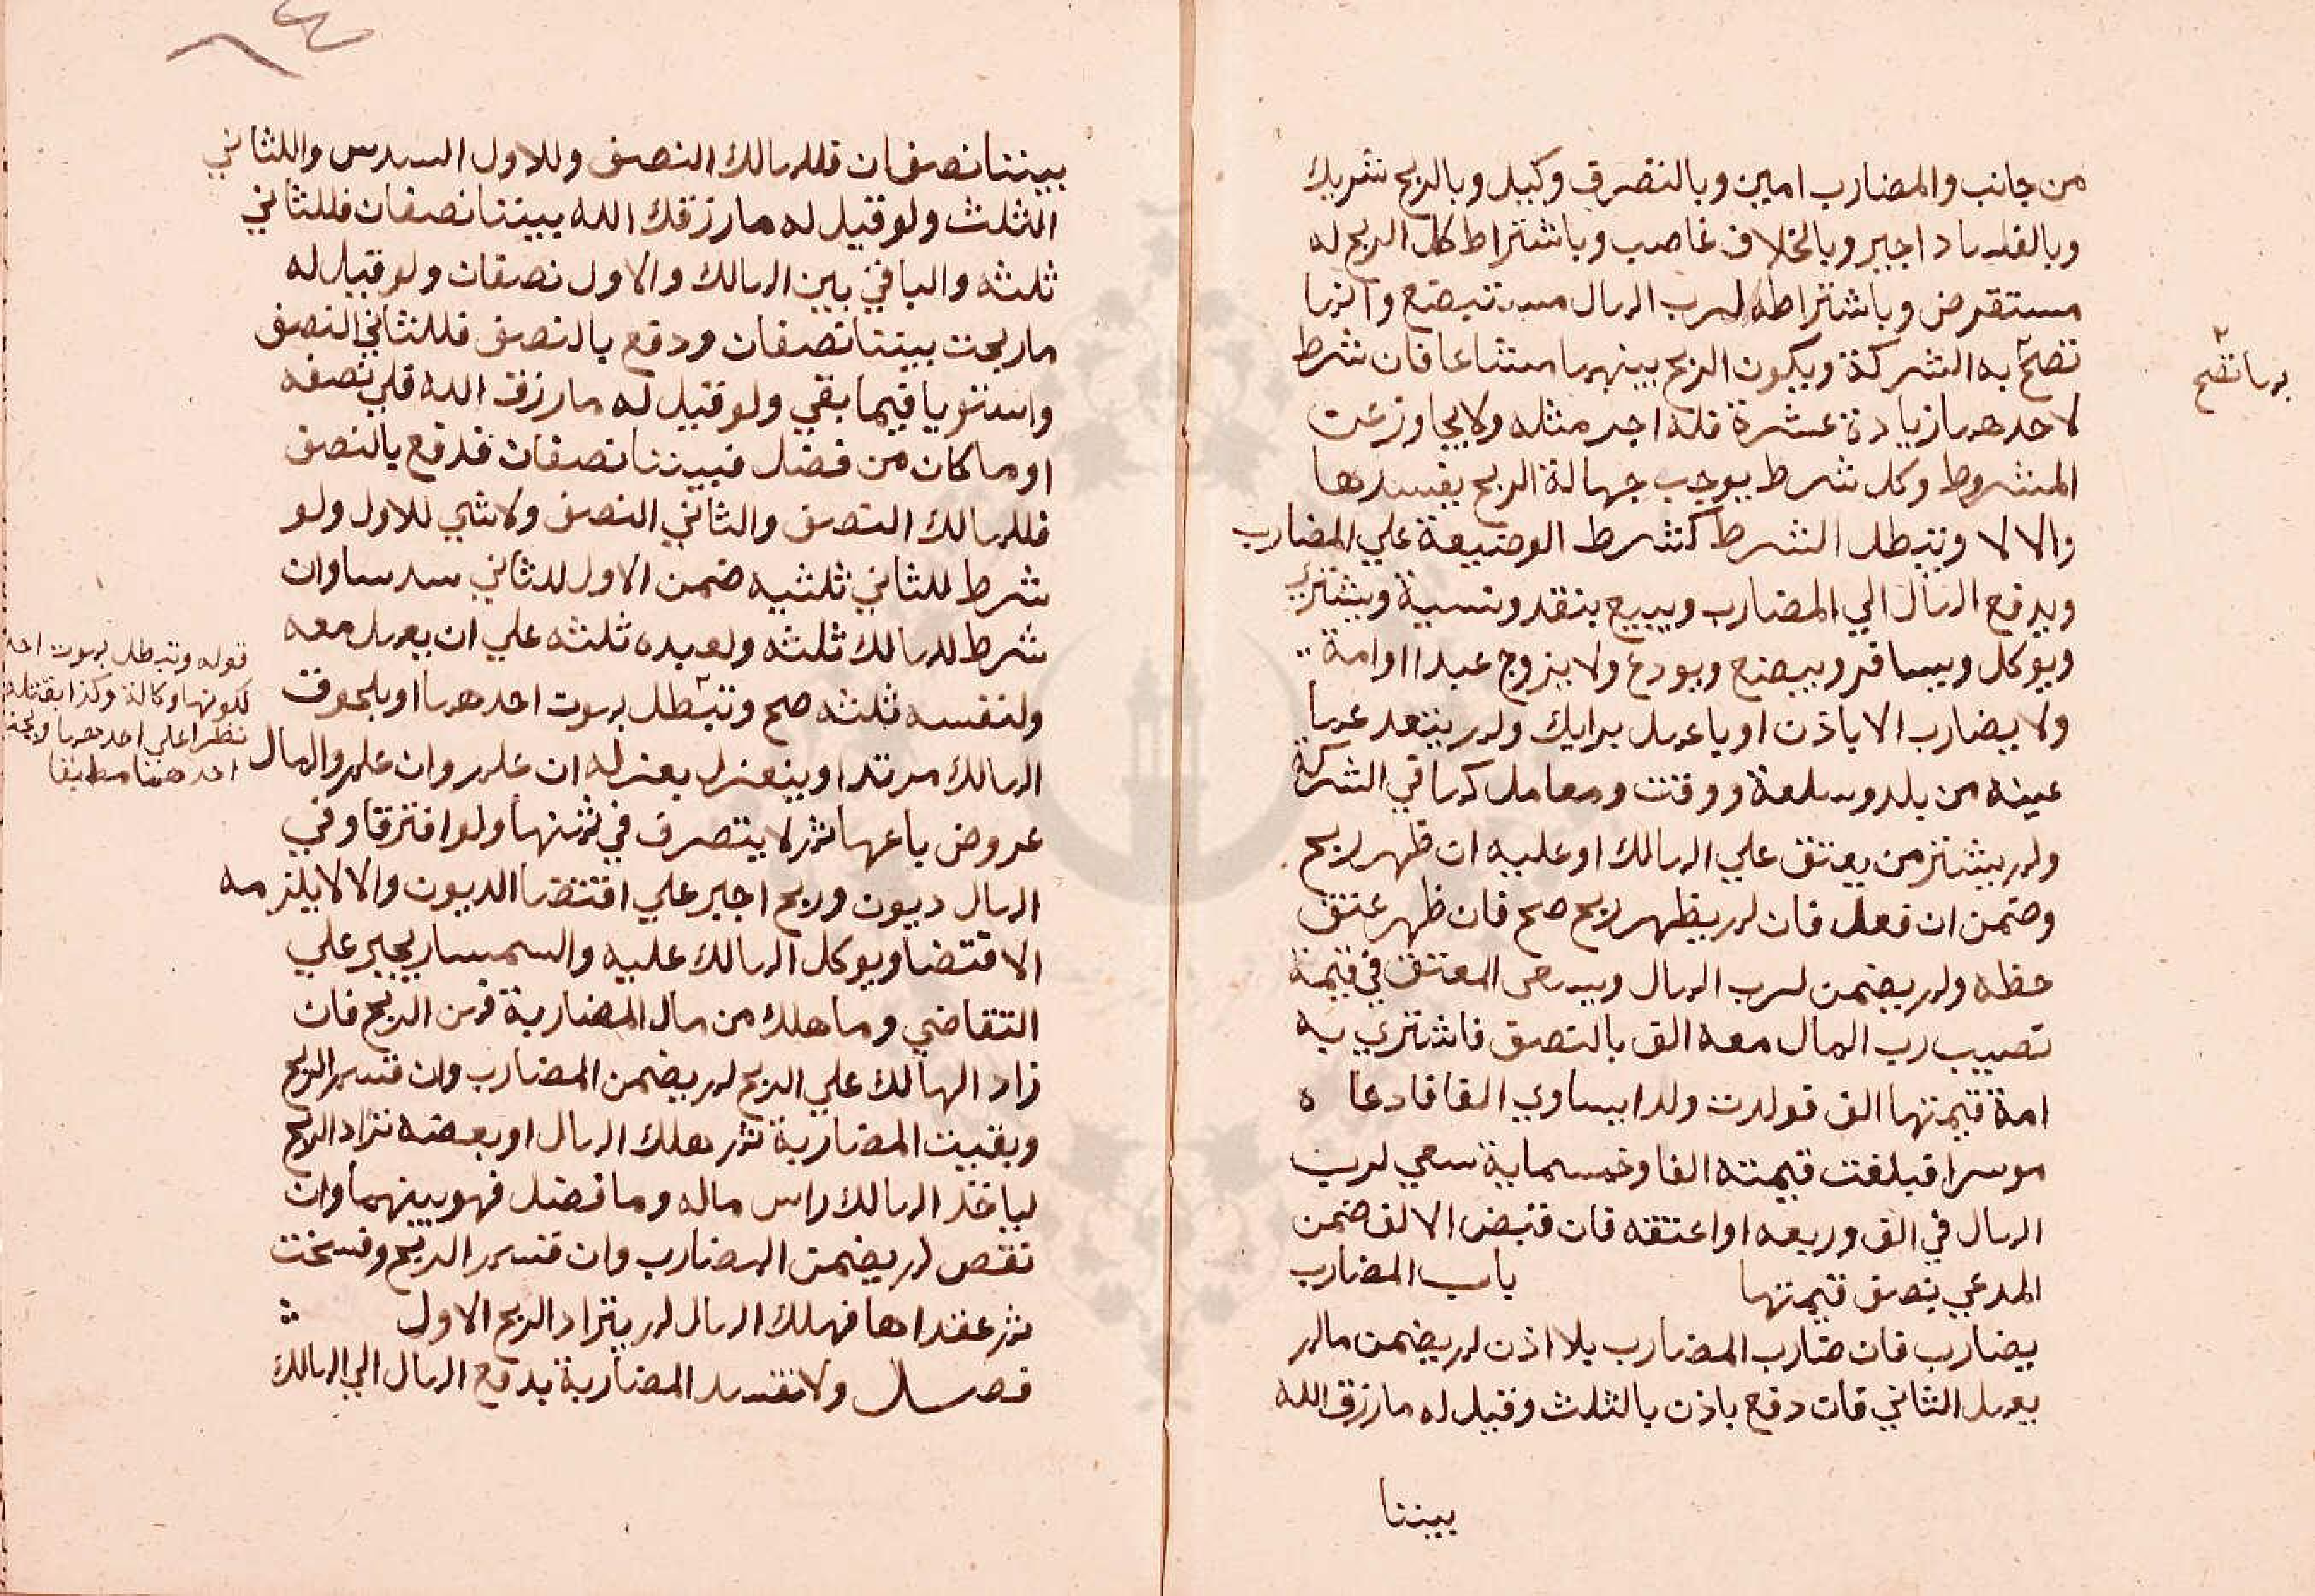 من جانب والمضارب امين وبالتصرف وكيل وبالربح شريك
وبالفساد اجير وبالخلاف غاصب وباشتراط كل الربح له
مستقرض وباشتراطه لرب المال مستبضع وانما
تصح به الشركة ويكون الربح بينهما مشاعا فان شرط
لاحدهما زيادة عشرة فله اجر مثله ولا يجاوز عن
المشروط وكل شرط يوجب جهالة الربح يفسدها
والا لا وتبطل الشرط كشرط الوضيعة علي المضارب
ويدفع المال الي المضارب ويبيع بنقد ونسية ويشتري
ويوكل ويسافر ويبضع ويودع ولا يزوج عبدا او امة
ولا يضارب الا باذن او باعمل برايك ولم يتعد عما
عينه من بلد وسلعة ووقت ومعامل كما في الشركة
ولم يشتر من يعتق علي المالك او عليه ان ظهر ربح
وضمن ان فعل فان لم يظهر ربح صح فان ظهر عتق
حظه ولم يضمن لرب المال ويسعى المعتق في قيمة
نصيب رب المال معه الف بالنصف فاشتري به
امة قيمتها الف فولدت ولدا يساوي الفا فادعا ه
موسرا فبلغت قيمته الفا وخمسماية سعي لرب
المال في الف وربعه او اعتقه فان قبض الالف ضمن
المدعي نصف قيمتها باب المضارب
يضارب فان ضارب المضارب بلا اذن لم يضمن مالم
يعمل الثاني فان دفع باذن بالثلث وقيل له ما رزق الله
بيننا
بما تصح
بيننا نصفان فللمالك النصف وللاول السدس واللثاني
الثلث ولو قيل له ما رزقك الله بيننا نصفان فللثاني
ثلثه والباقي بين المالك والاول نصفان ولو قيل له
ما ربحت بيننا نصفان ودفع بالنصف فللثاني النصف
واستويا فيما بقي ولو قيل له ما رزق الله فلي نصفه
او ما كان من فضل فبيننا نصفان فدفع بالنصف
فللمالك النصف والثاني النصف ولا شي للاول ولو
شرط للثاني ثلثيه ضمن الاول للثاني سدسا وان
شرط للمالك ثلثه ولعبده ثلثه علي ان يعمل معه
ولنفسه ثلثه صح وتبطل بموت احدهما او بلحوق
المالك مرتدا وينعزل بعزله ان علم وان علم والمال
عروض باعها ثم لا يتصرف في ثمنها ولو افترقا وفي
المال ديون وربح اجبر علي اقتضا الديون والا لا يلزمه
الاقتضا ويوكل المالك عليه والسمسار يجبر علي
التقاضي وما هلك من مال المضاربة فمن الربح فان
زاد الهالك علي الربح لم يضمن المضارب وان قسم الربح
وبقيت المضاربة ثم هلك المال او بعضه ترادا الربح
لياخذ المالك راس ماله وما فضل فهو بينهما وان
نقص لم يضمن المضارب وان قسم الربح وفسخت
ثم عقداها فهلك المال لم يترادا الربح الاول
فصل ولا تفسد المضاربة بدفع المال الي المالك
قوله وتبطل بموت احد
لكونها وكالة وكذا بقتله
احدهما مطبقا